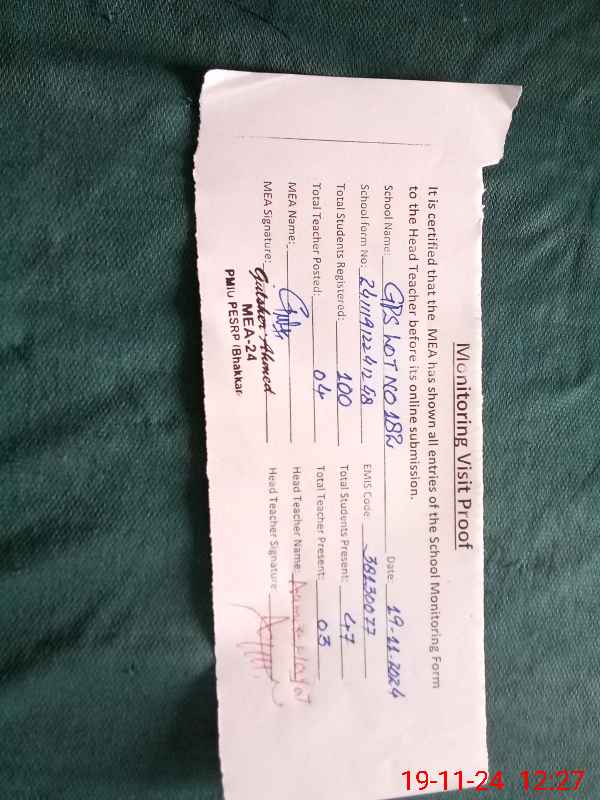 Monitoring Visit Proof
It is certified that the MEA has shown all entries of the School Monitoring Form
to the Head Teacher before its online submission.
School Name: GPS LOT NO 182 Date: 19-11-2024
School form No: 241119122241248 EMIS Code: 38130077
Total Students Registered: 100 Total Students Present: 47
Total Teacher Posted: 04 Total Teacher Present: 03
MEA Name: Head Teacher Name:
MEA Signature: Gulsher Ahmed Head Teacher Signature:
MEA-24
PMIU PESRP/Bhakkar
19-11-24 12:27